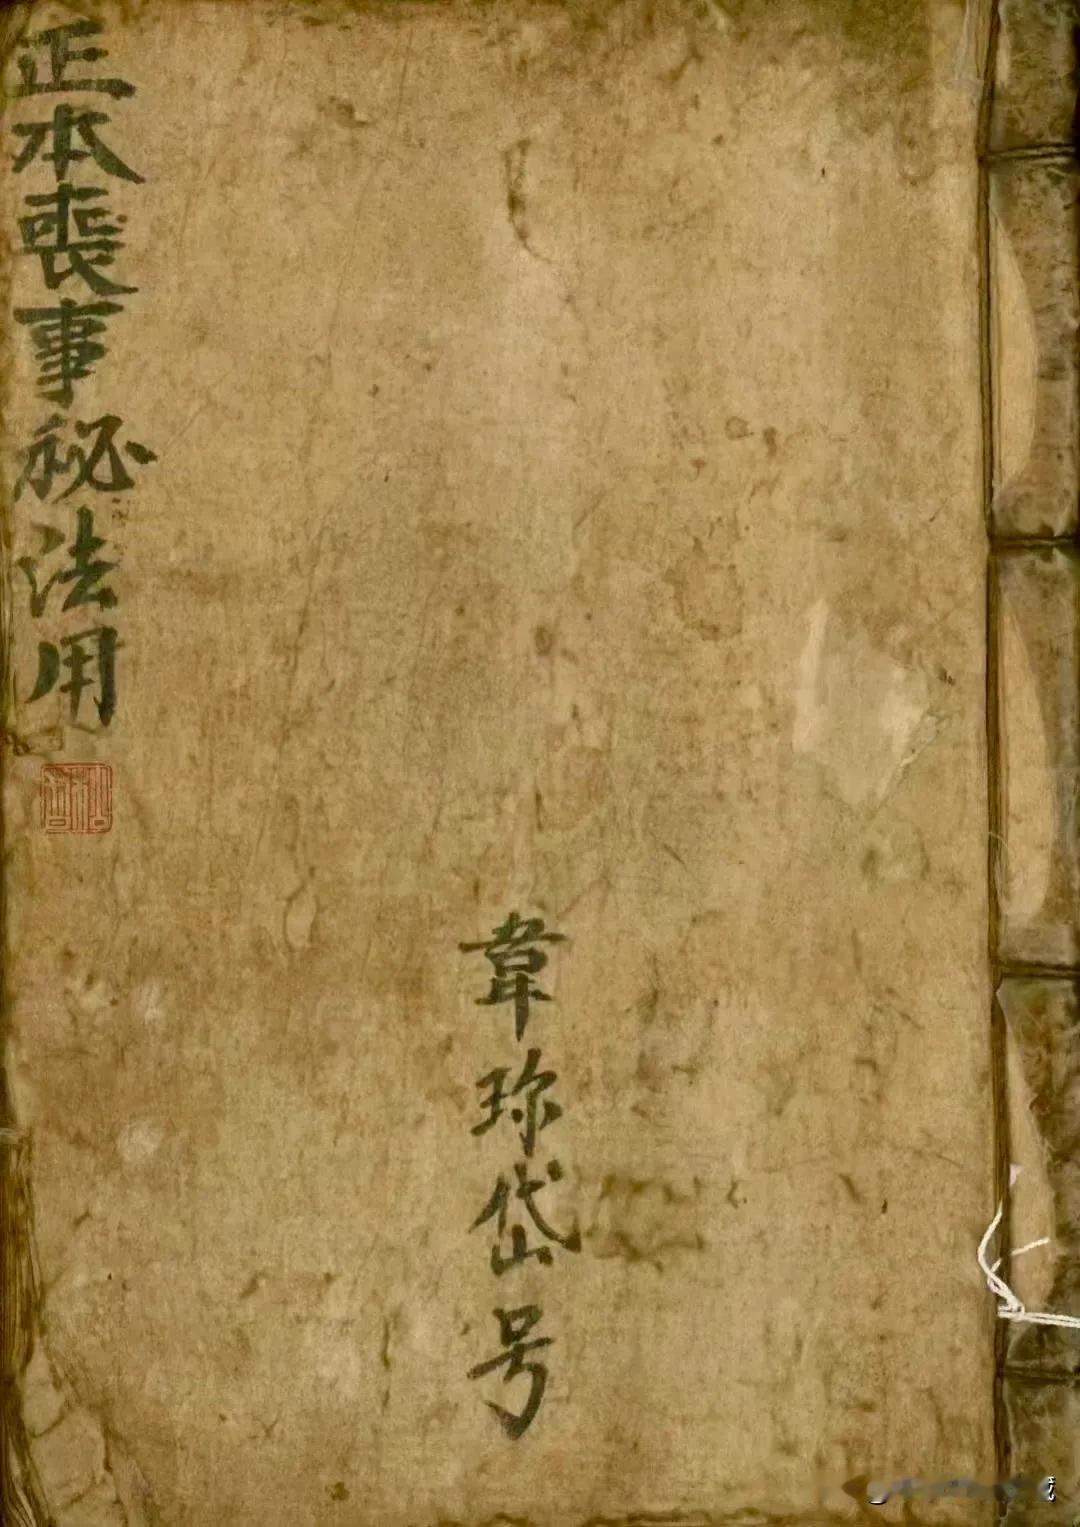 正本喪事秘法用
韋珎岱号